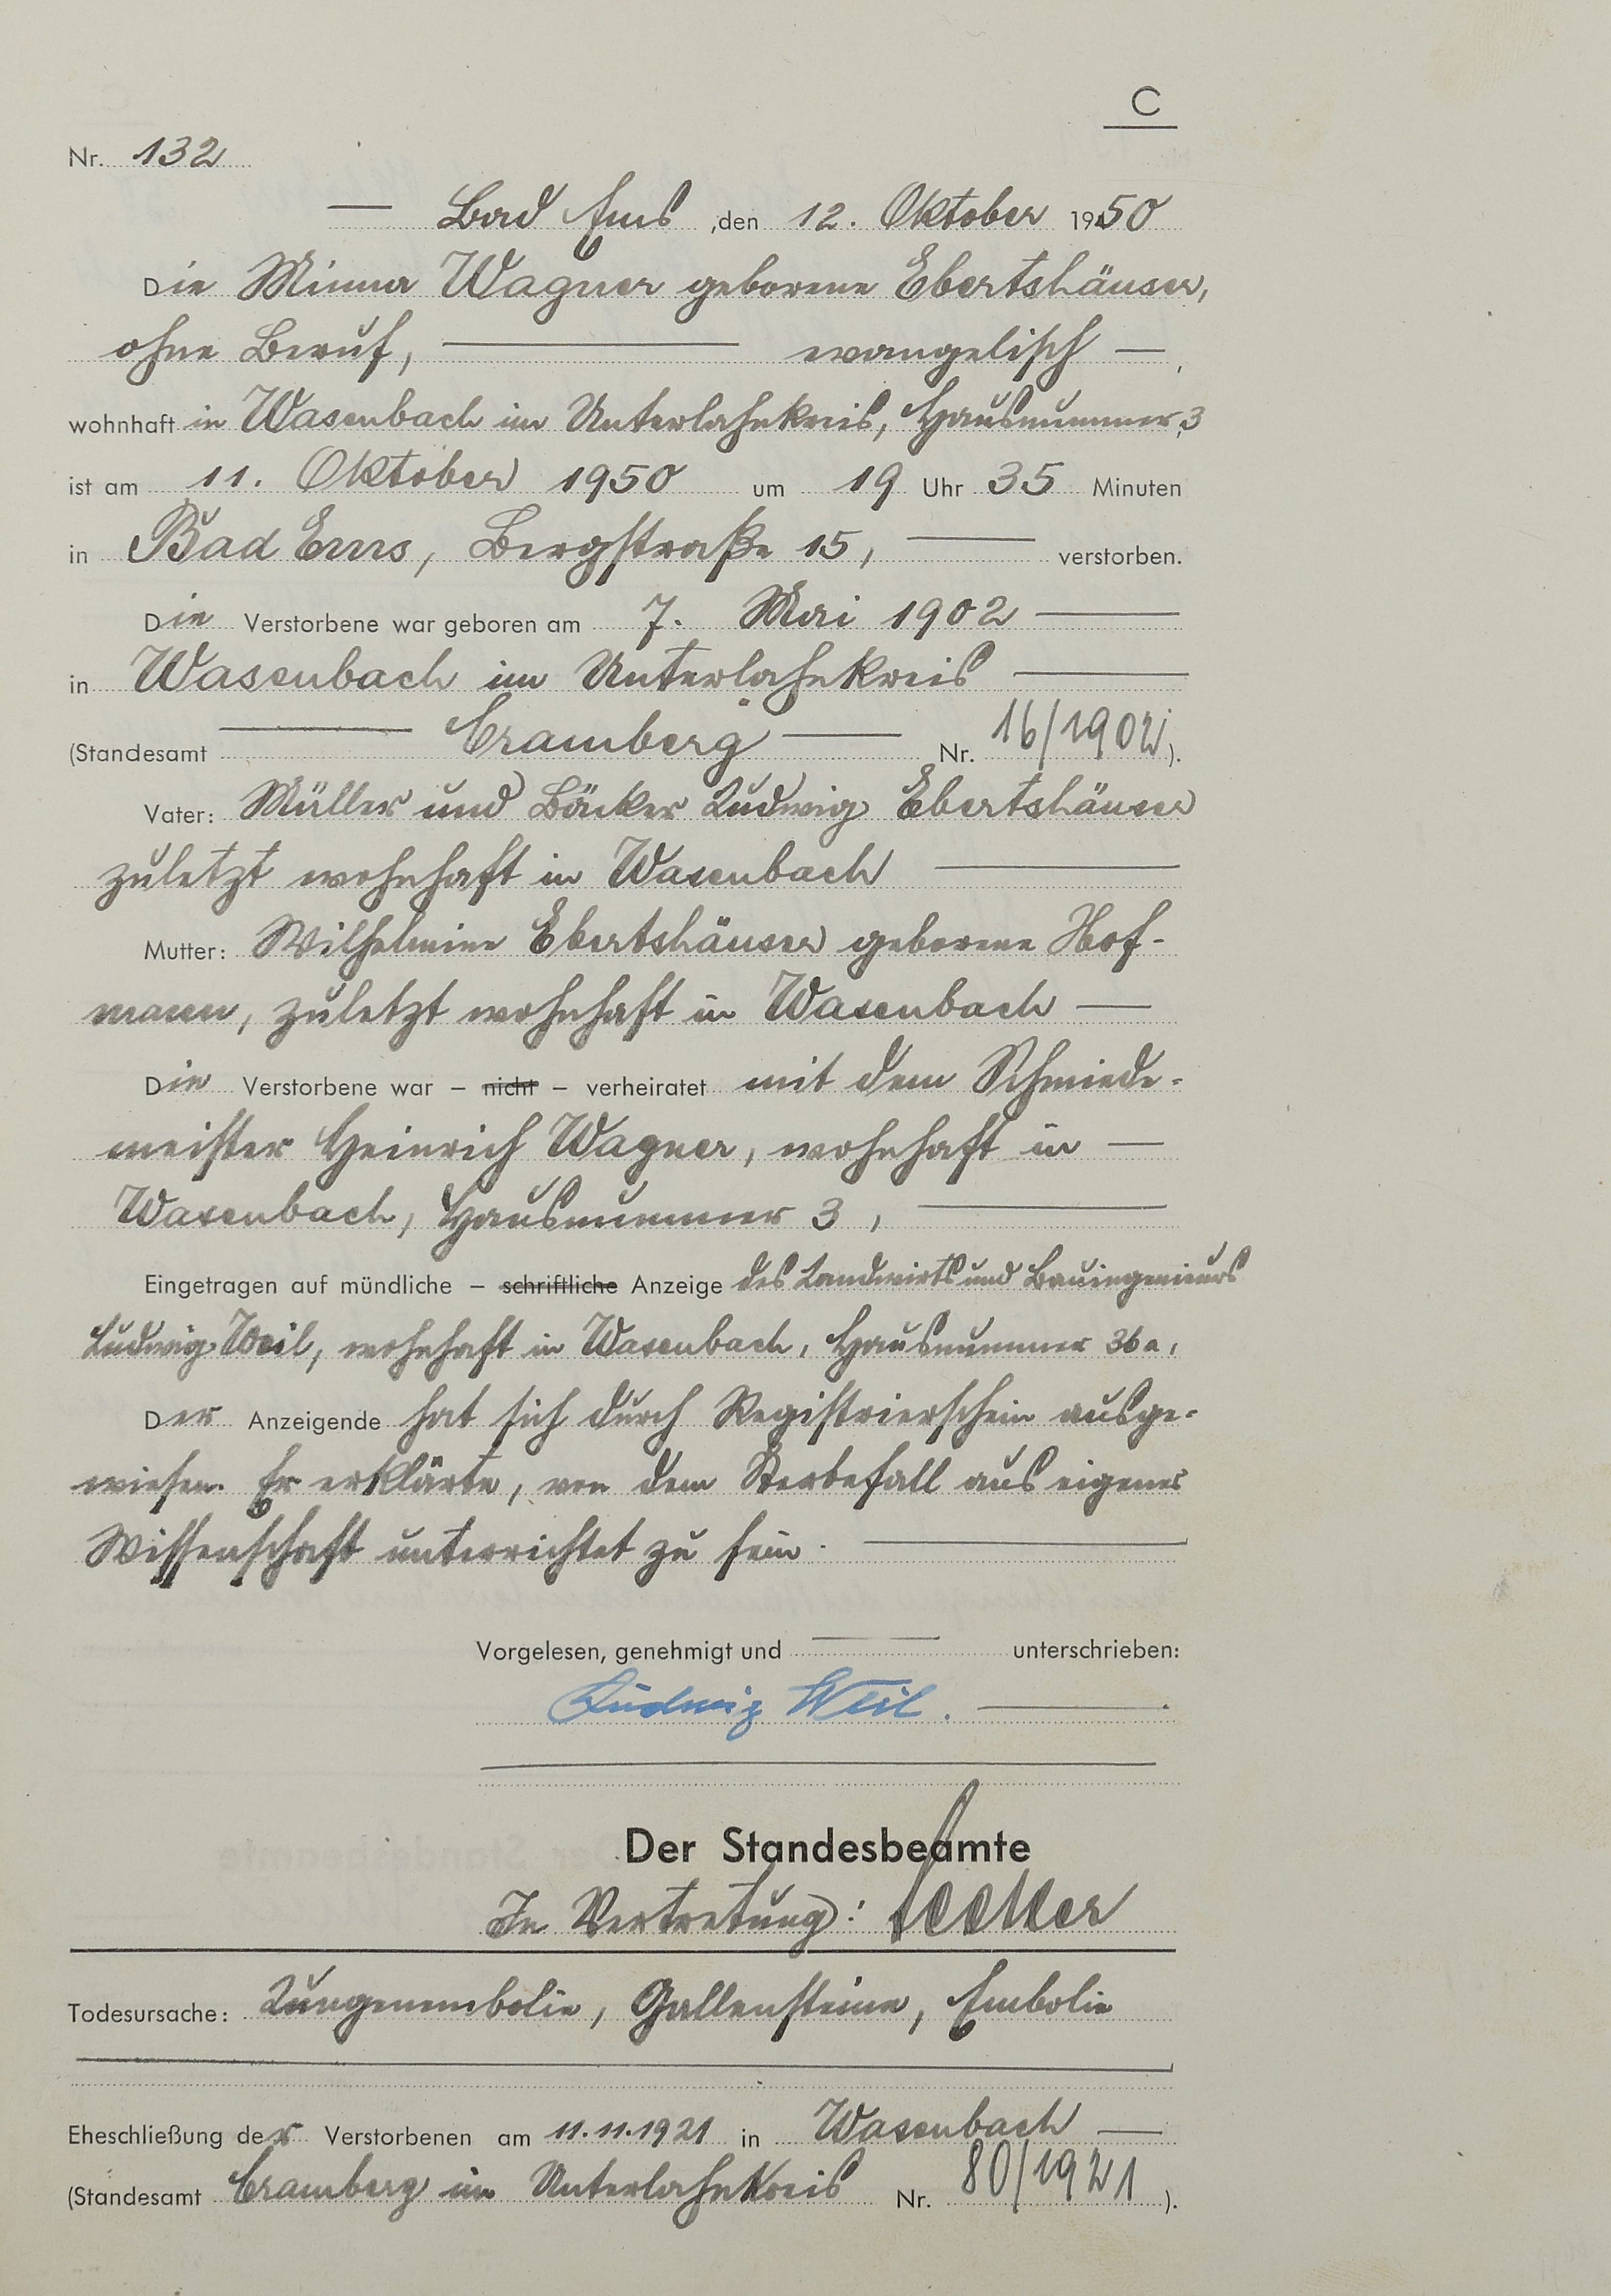 C
Nr. 132
— Bad Ems, den 12. Oktober 1950
Die Minna Wagner geborene Ebertshäuser,
ohne Beruf, — evangelisch —,
wohnhaft in Wasenbach im Unterlahnkreis, Hausnummer 3
ist am 11. Oktober 1950 um 19 Uhr 35 Minuten
in Bad Ems, Bergstraße 15, — verstorben.
Die Verstorbene war geboren am 7. Mai 1902 —
in Wasenbach im Unterlahnkreis —
(Standesamt — Cramberg — Nr. 16/1902).
Vater: Müller und Bäcker Ludwig Ebertshäuser
zuletzt wohnhaft in Wasenbach —
Mutter: Wilhelmine Ebertshäuser geborene Hof-
mann, zuletzt wohnhaft in Wasenbach —
Die Verstorbene war – nicht – verheiratet mit dem Schmiede-
meister Heinrich Wagner, wohnhaft in —
Wasenbach, Hausnummer 3, —
Eingetragen auf mündliche – schriftliche Anzeige des Landwirts und Bauingenieurs
Ludwig Weil, wohnhaft in Wasenbach, Hausnummer 36a,
Der Anzeigende hat sich durch Registrierschein ausge-
wiesen. Er erklärte, von dem Sterbefall aus eigener
Wissenschaft unterrichtet zu sein. —
Vorgelesen, genehmigt und — unterschrieben:
Ludwig Weil. —
Der Standesbeamte
In Vertretung:
Todesursache: Lungenembolie, Gallensteine, Embolie
Eheschließung der Verstorbenen am 11.11.1921 in Wasenbach —
(Standesamt Cramberg im Unterlahnkreis Nr. 80/1921).